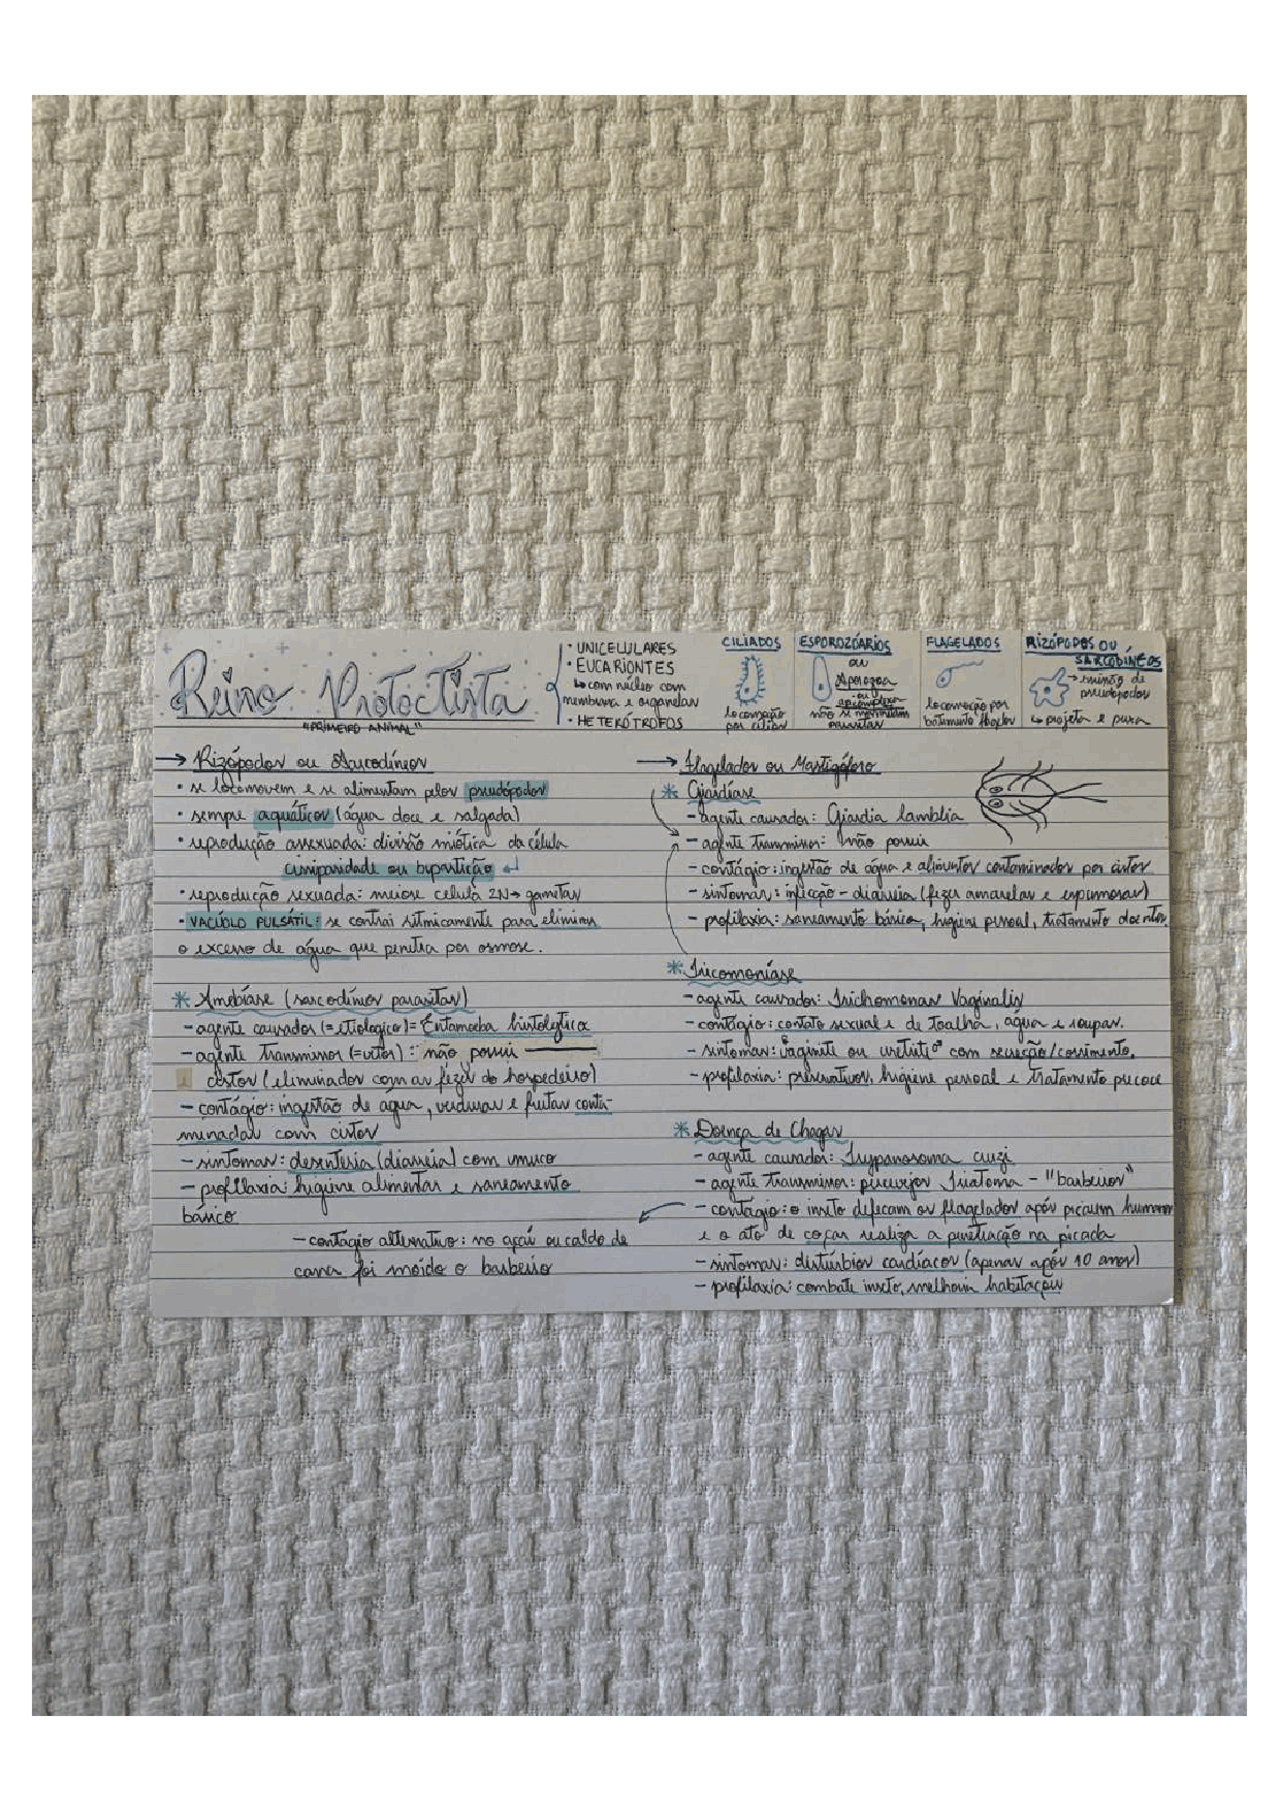 Reino Protoctista
"PRIMEIRO ANIMAL"
• UNICELULARES
• EUCARIONTES
↳ com núcleo com
membrana e organelas
• HETERÓTROFOS
CILIADOS
locomoção
por cílios
ESPOROZOÁRIOS
ou
Apicomplexa
não se movimentam
parasitas
FLAGELADOS
locomoção por
batimento flagelos
RIZÓPODES OU
SARCODÍNEOS
→ emissão de
pseudópodos
↳ projeta e puxa
→ Rizópodos ou Sarcodíneos
• se locomovem e se alimentam pelos pseudópodos
• sempre aquáticos (água doce e salgada)
• reprodução assexuada: divisão miótica da célula
cissiparidade ou bipartição
• reprodução sexuada: meiose celula 2N → gametas
• VACÚOLO PULSÁTIL: se contrai ritmicamente para eliminar
o excesso de água que penetra por osmose.
* Amebíase (sarcodíneos parasitas)
- agente causador (= etiologico) = Entamoeba histolytica
- agente transmissor (= vetor): não possui
cistos (eliminados com as fezes do hospedeiro)
- contágio: ingestão de água, verduras e frutas conta-
minadas com cistos
- sintomas: desenteria (diarréia) com muco
- profilaxia: higiene alimentar e saneamento
básico
- contágio alternativo: no açaí ou caldo de
cana foi moído o barbeiro
→ Flagelados ou Mastigóforo
* Giardíase
- agente causador: Giardia lamblia
- agente transmissor: não possui
- contágio: ingestão de água e alimentos contaminados por cistos
- sintomas: infecção - diarreia (fezes amarelas e espumosas)
- profilaxia: saneamento básico, higiene pessoal, tratamento doentes.
* Tricomoníase
- agente causador: Trichomonas Vaginalis
- contágio: contato sexual e de toalha, água e roupas.
- sintomas: vaginite ou uretrite ♂ com secreção/corrimento.
- profilaxia: preservativos, higiene pessoal e tratamento precoce
* Doença de Chagas
- agente causador: Trypanosoma cruzi
- agente transmissor: percevejos Triatoma - "barbeiros"
- contágio: o inseto defecam os flagelados após picarem humanos
e o ato de coçar realiza a penetração na picada
- sintomas: distúrbios cardíacos (apenas após 10 anos)
- profilaxia: combate inseto, melhoria habitações